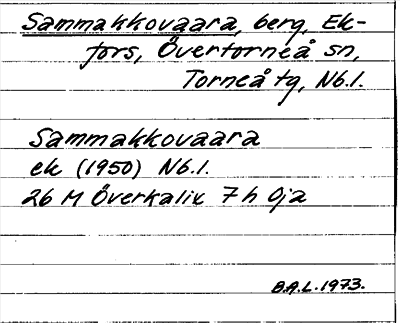 Sammakkovaara, berg, Ek-
fors, Övertorneå sn,
Torneå tg, Nb.l.
Sammakkovaara
ek (1950) Nb.l.
26 M Överkalix 7 h Oja
B.A.L. 1973.